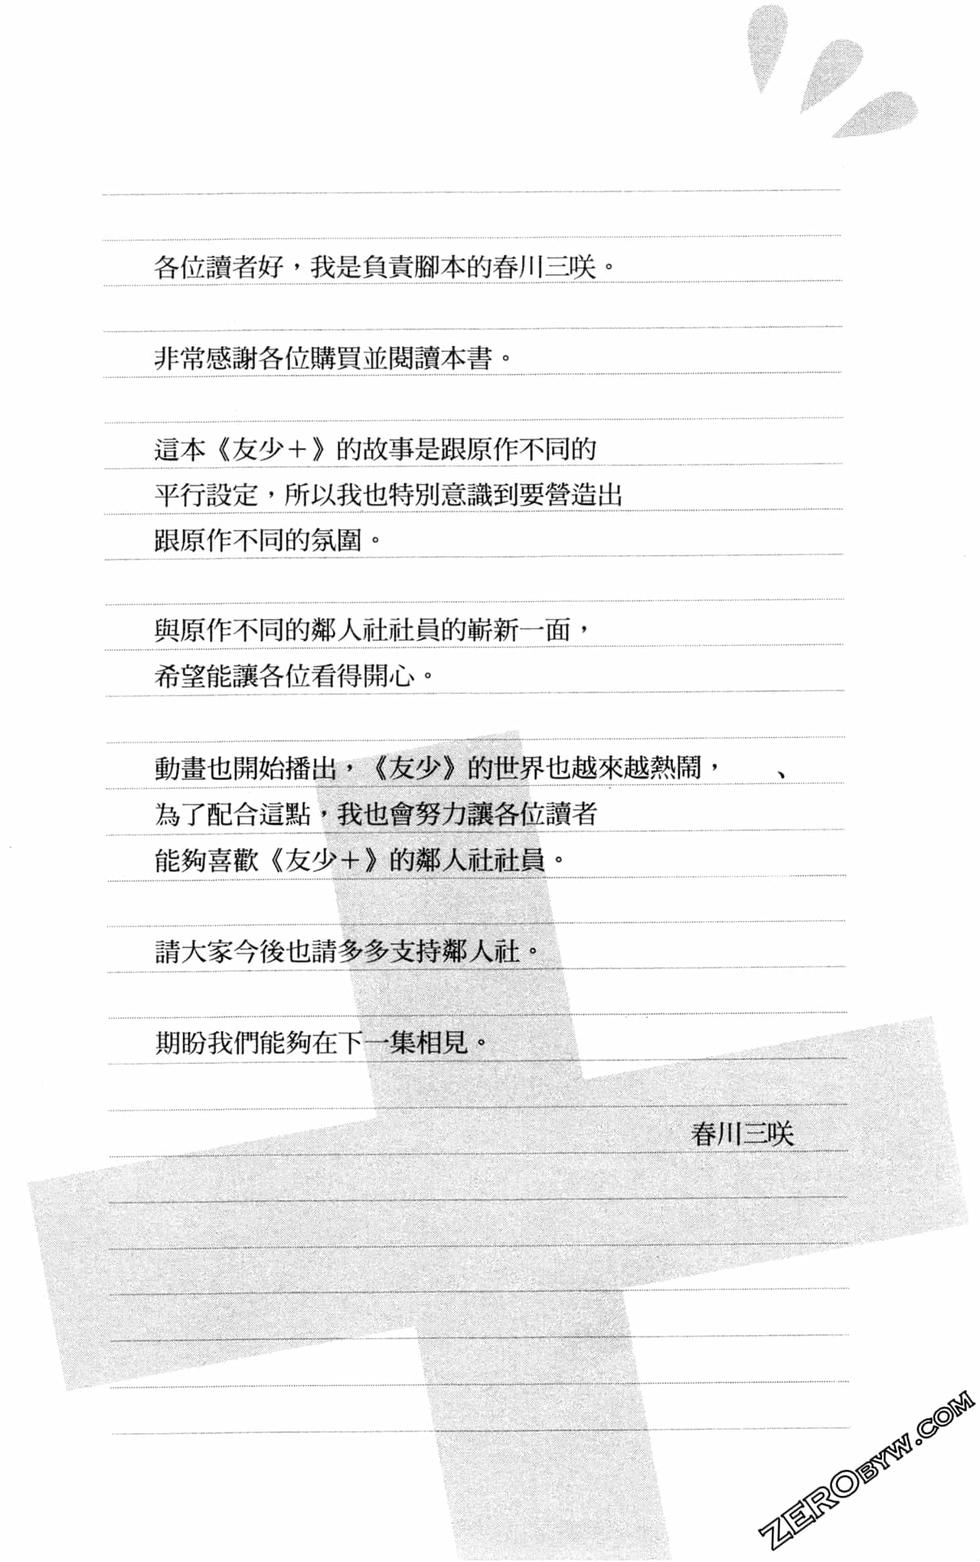 各位讀者好，我是負責腳本的春川三咲。
非常感謝各位購買並閱讀本書。
這本《友少＋》的故事是跟原作不同的
平行設定，所以我也特別意識到要營造出
跟原作不同的氛圍。
與原作不同的鄰人社社員的嶄新一面，
希望能讓各位看得開心。
動畫也開始播出，《友少》的世界也越來越熱鬧，　、
為了配合這點，我也會努力讓各位讀者
能夠喜歡《友少＋》的鄰人社社員。
請大家今後也請多多支持鄰人社。
期盼我們能夠在下一集相見。
春川三咲
ZEROBYW.COM